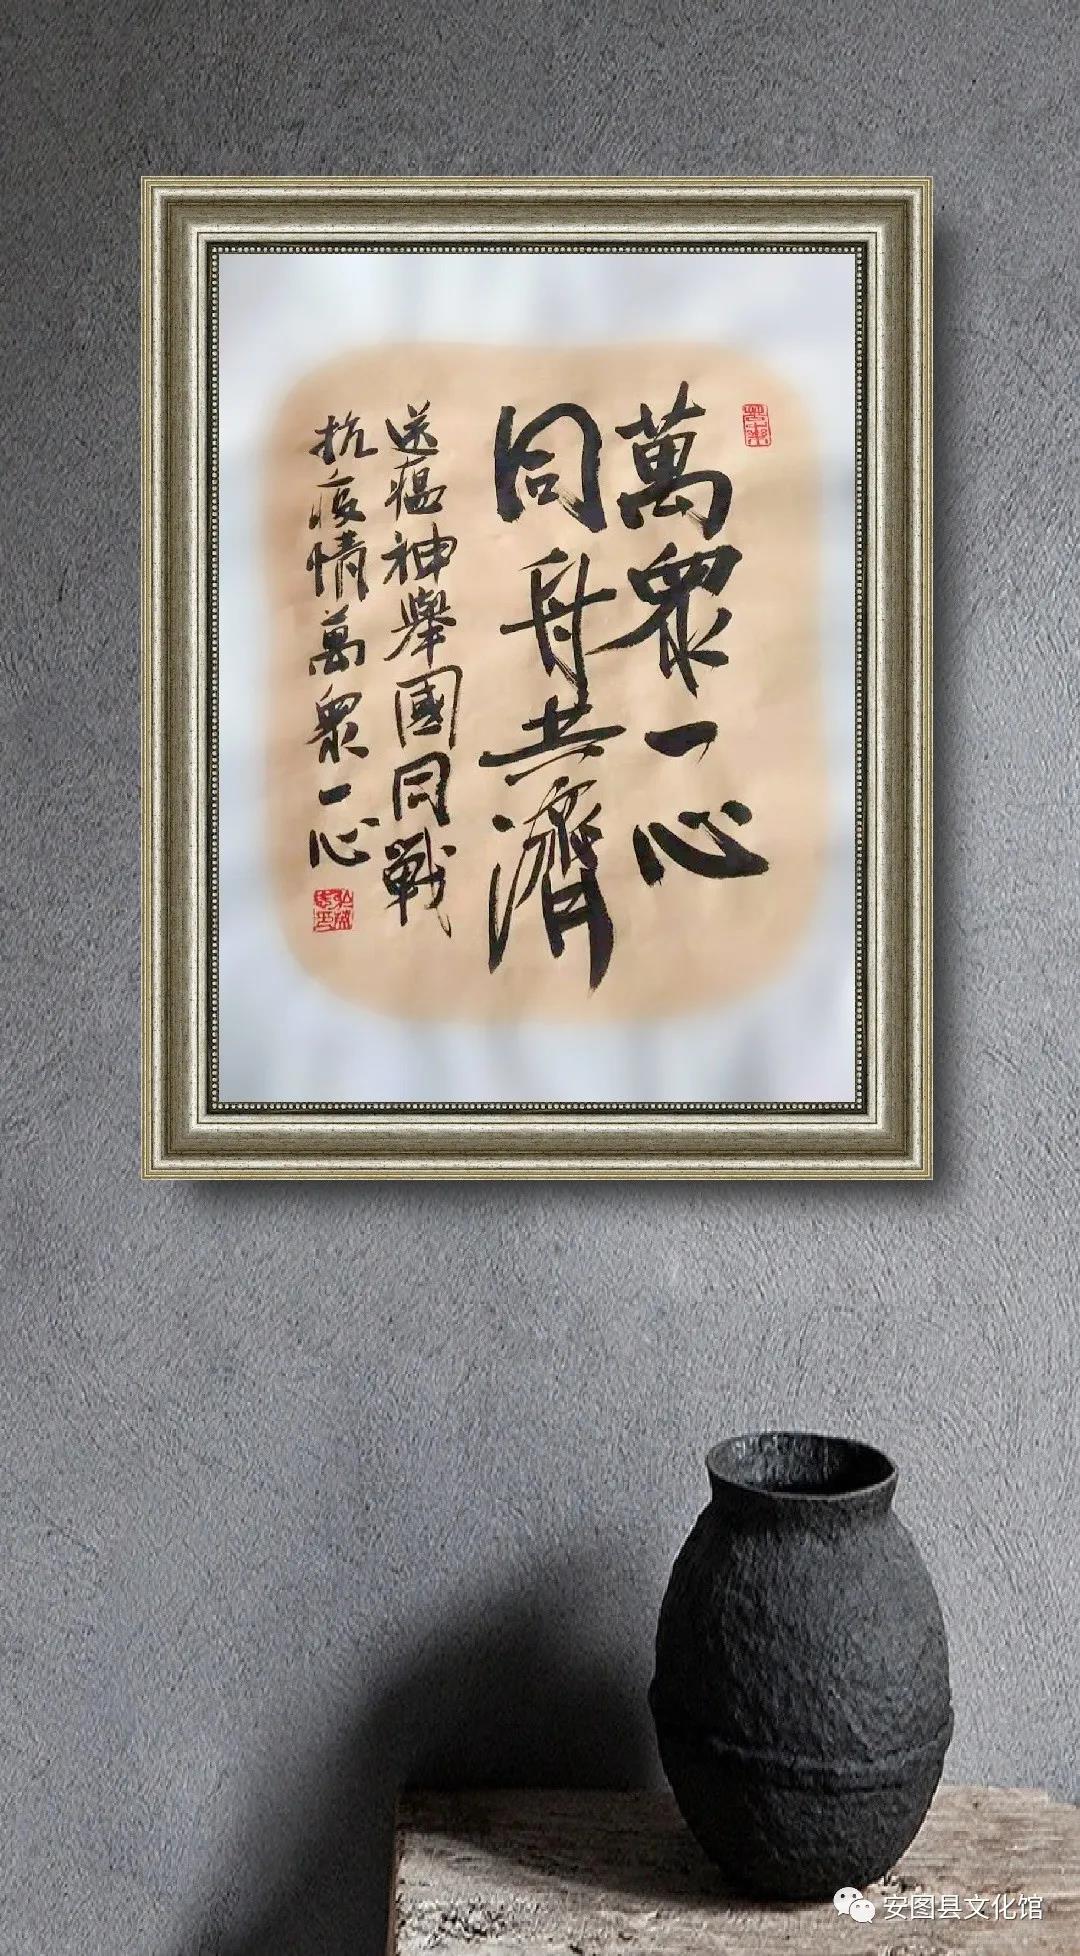 萬眾一心
同舟共濟
送瘟神舉國同戰
抗疫情萬眾一心
安图县文化馆